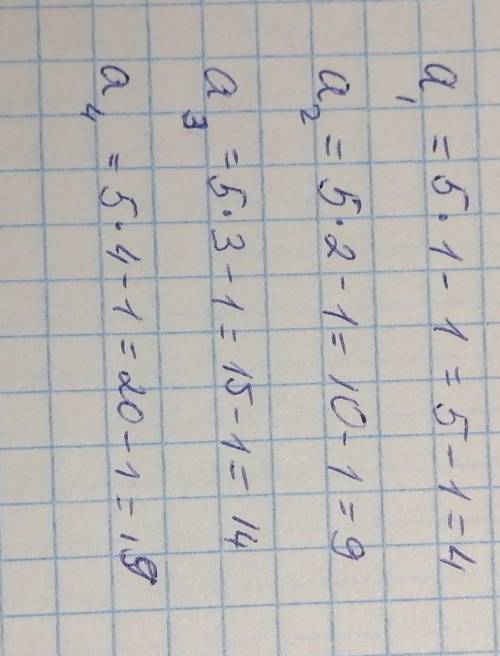 a₁ = 5·1 - 1 = 5 - 1 = 4
a₂ = 5·2 - 1 = 10 - 1 = 9
a₃ = 5·3 - 1 = 15 - 1 = 14
a₄ = 5·4 - 1 = 20 - 1 = 19